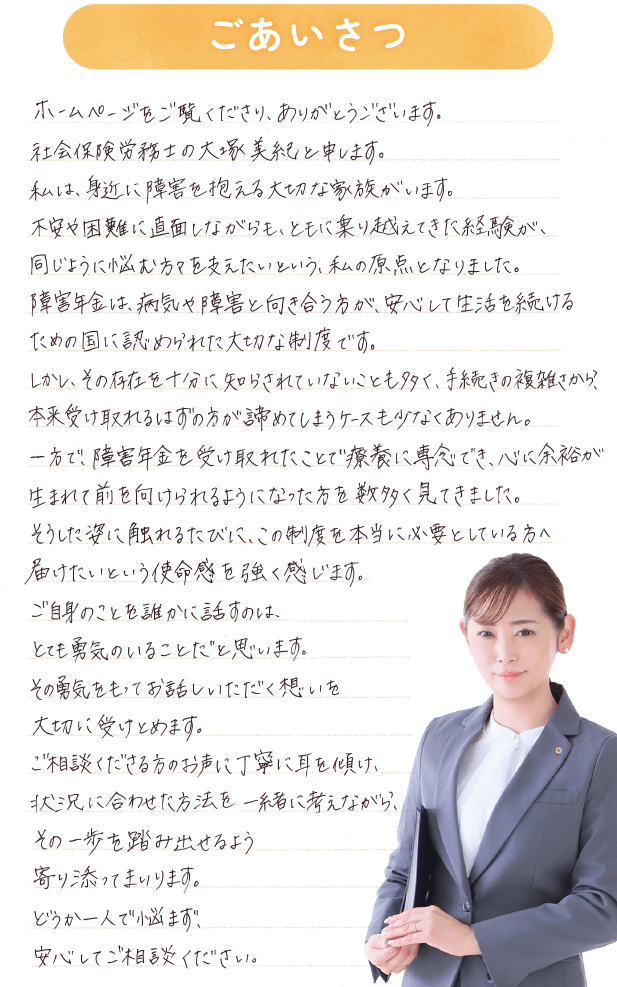 ごあいさつ
ホームページをご覧くださり、ありがとうございます。
社会保険労務士の大塚美紀と申します。
私は、身近に障害を抱える大切な家族がいます。
不安や困難に直面しながらも、ともに乗り越えてきた経験が、
同じように悩む方々を支えたいという、私の原点となりました。
障害年金は、病気や障害と向き合う方が、安心して生活を続ける
ための国に認められた大切な制度です。
しかし、その存在を十分に知らされていないことも多く、手続きの複雑さから、
本来受け取れるはずの方が諦めてしまうケースも少なくありません。
一方で、障害年金を受け取れたことで療養に専念でき、心に余裕が
生まれて前を向けられるようになった方を数多く見てきました。
そうした姿に触れるたびに、この制度を本当に必要としている方へ
届けたいという使命感を強く感じます。
ご自身のことを誰かに話すのは、
とても勇気のいることだと思います。
その勇気をもってお話しいただく想いを
大切に受けとめます。
ご相談くださる方のお声に丁寧に耳を傾け、
状況に合わせた方法を一緒に考えながら、
その一歩を踏み出せるよう
寄り添ってまいります。
どうか一人で悩まず、
安心してご相談ください。